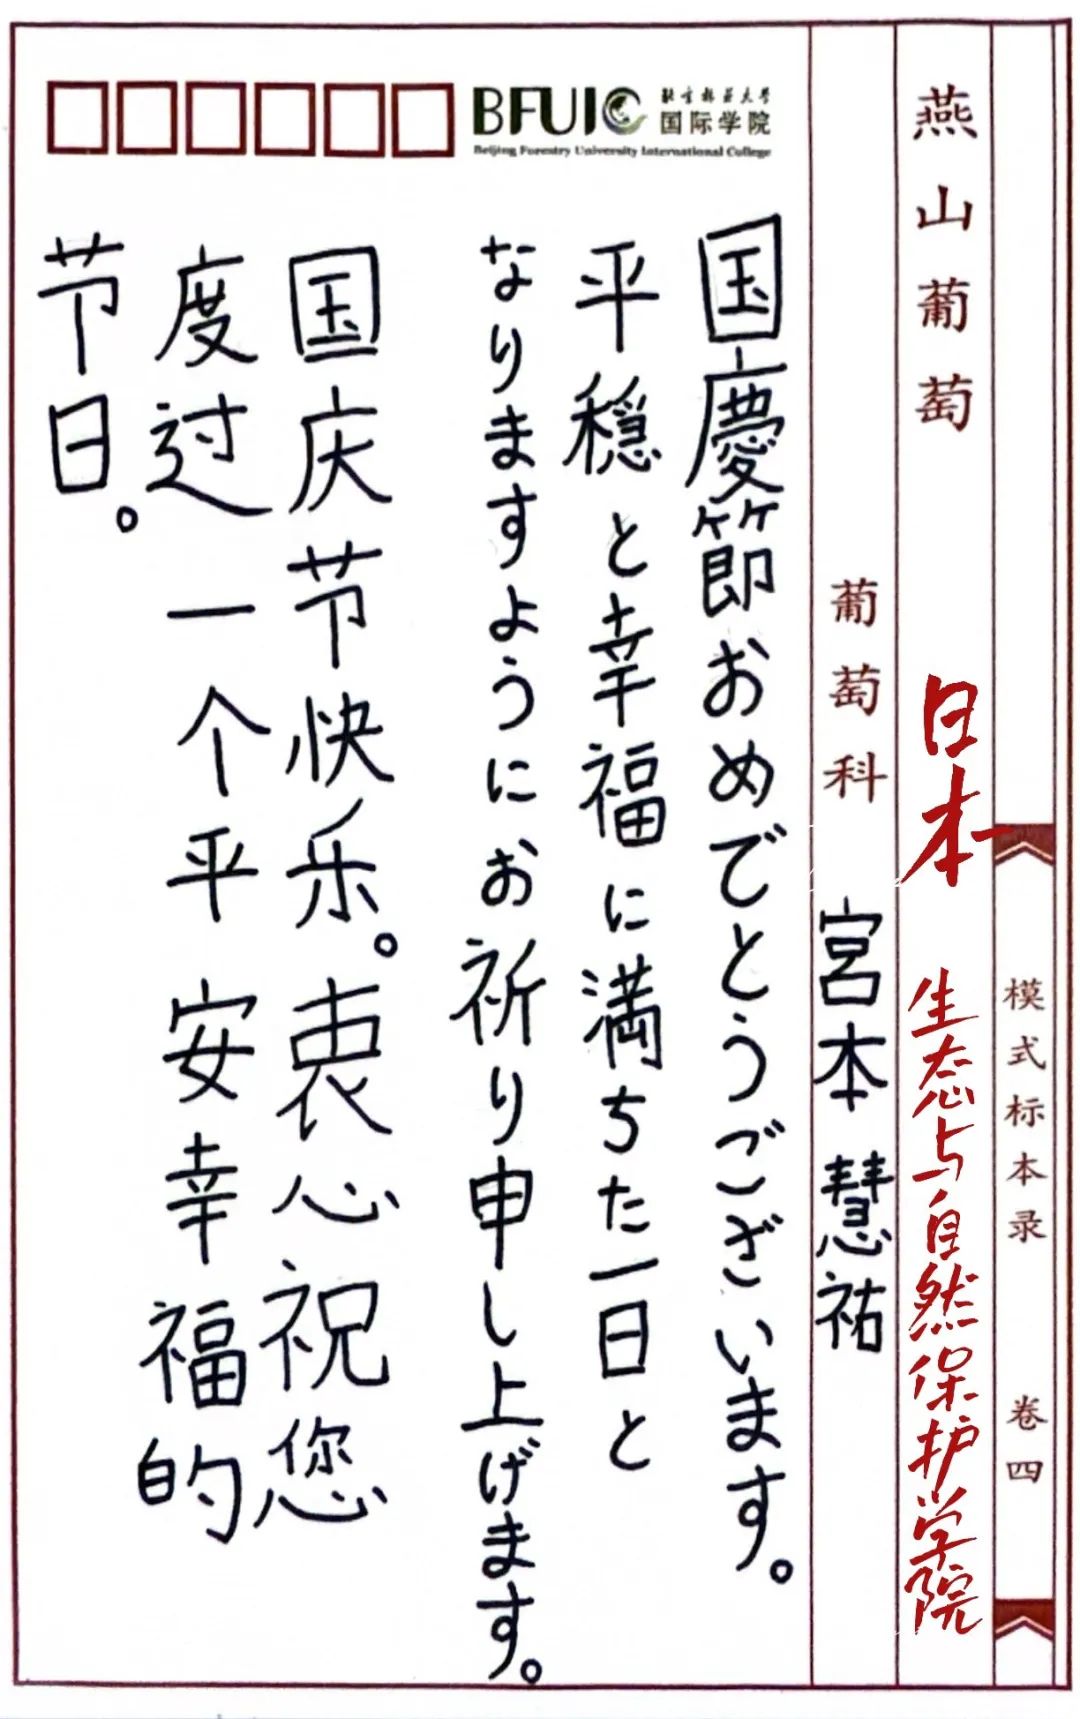 模式标本录 卷四
燕山葡萄 日本 生态与自然保护学院
葡萄科 宮本慧祐
BFUIC
北京林业大学
国际学院
Beijing Forestry University International College
国慶節おめでとうございます。
平穏と幸福に満ちた一日と
なりますようにお祈り申し上げます。
国庆节快乐。衷心祝您
度过一个平安幸福的
节日。